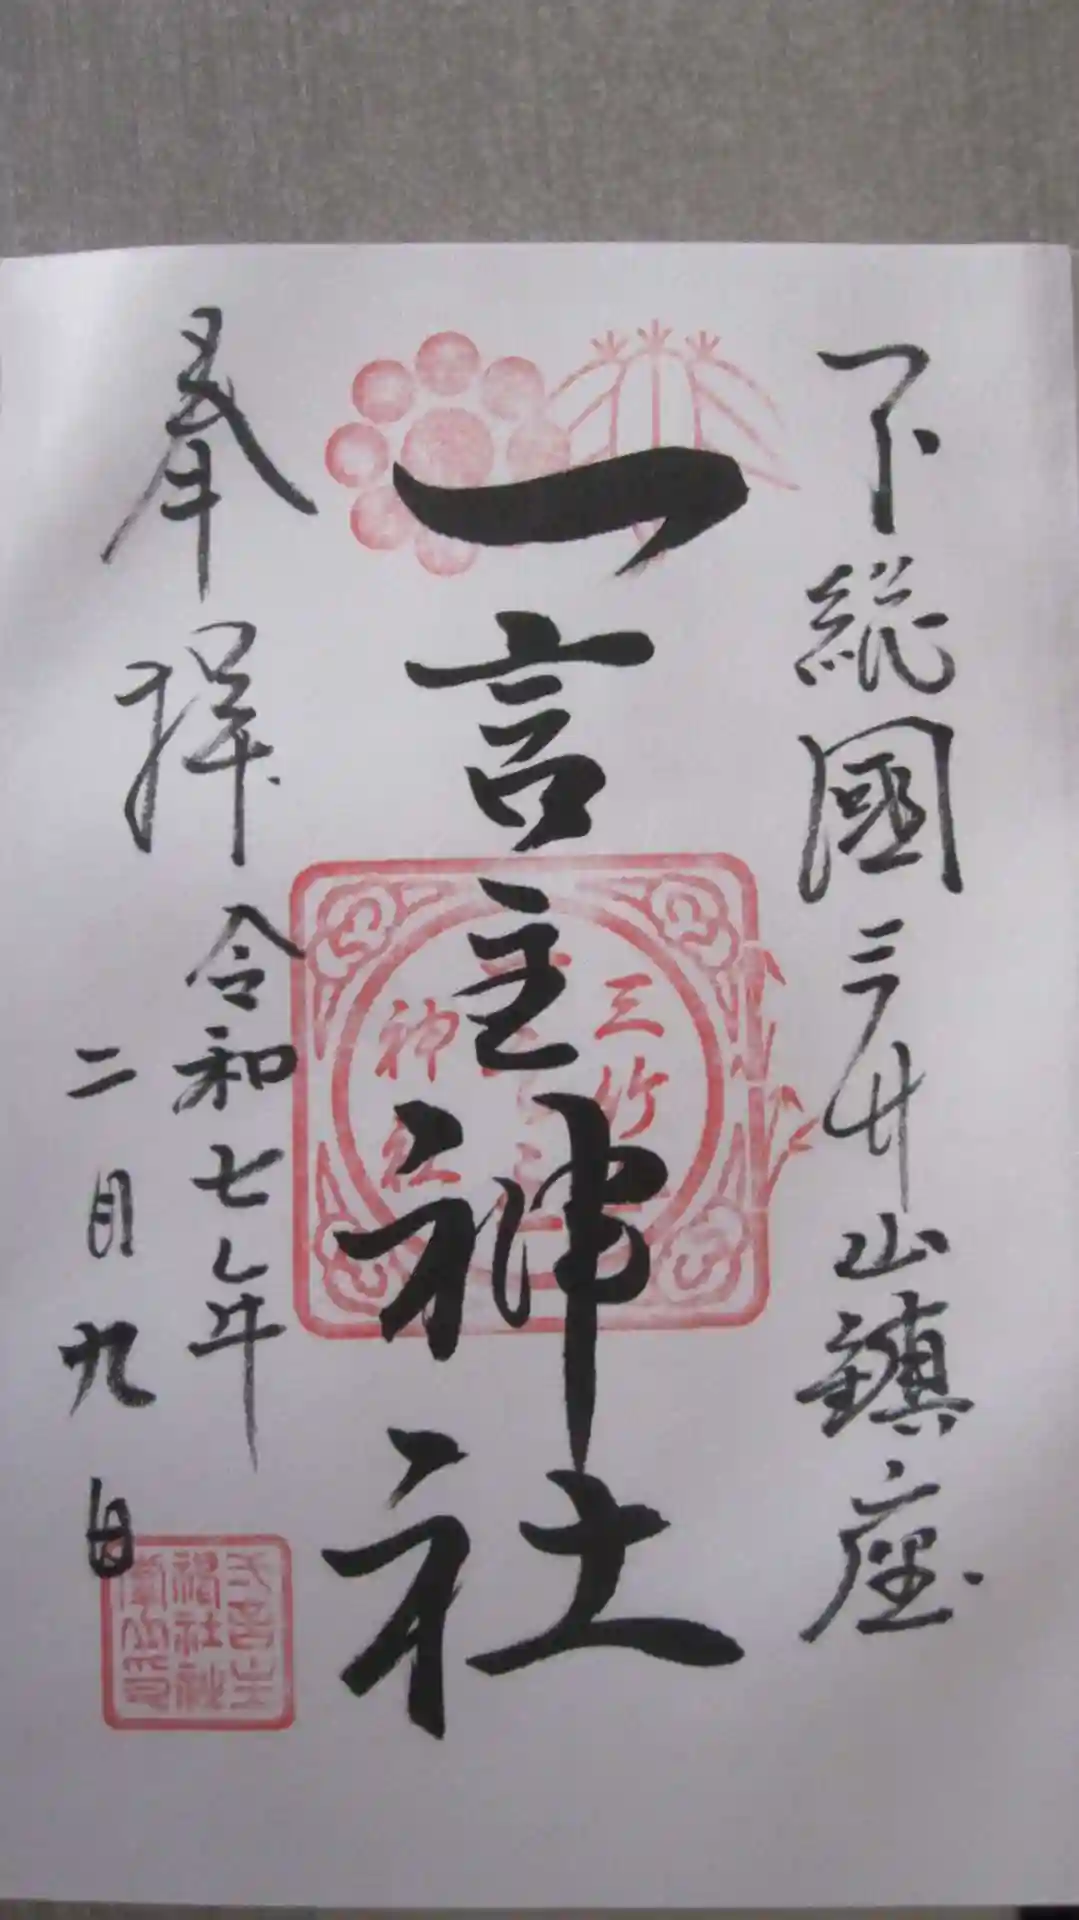 下総國三竹山鎮座
一言主神社
奉拝
令和七年
二月九日
三竹山
神社